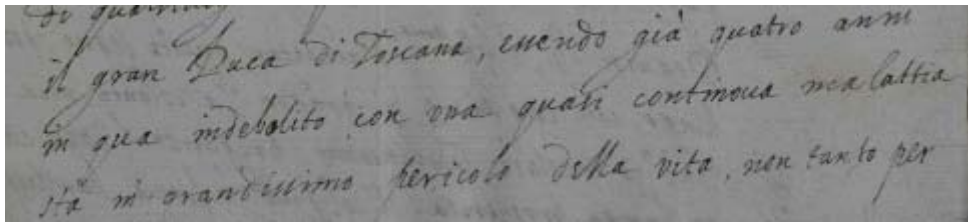 di
il gran Duca di Toscana, essendo già quatro anni
in qua indebolito con una quasi continova malattia
stà in grandissimo pericolo della vita, non tanto per